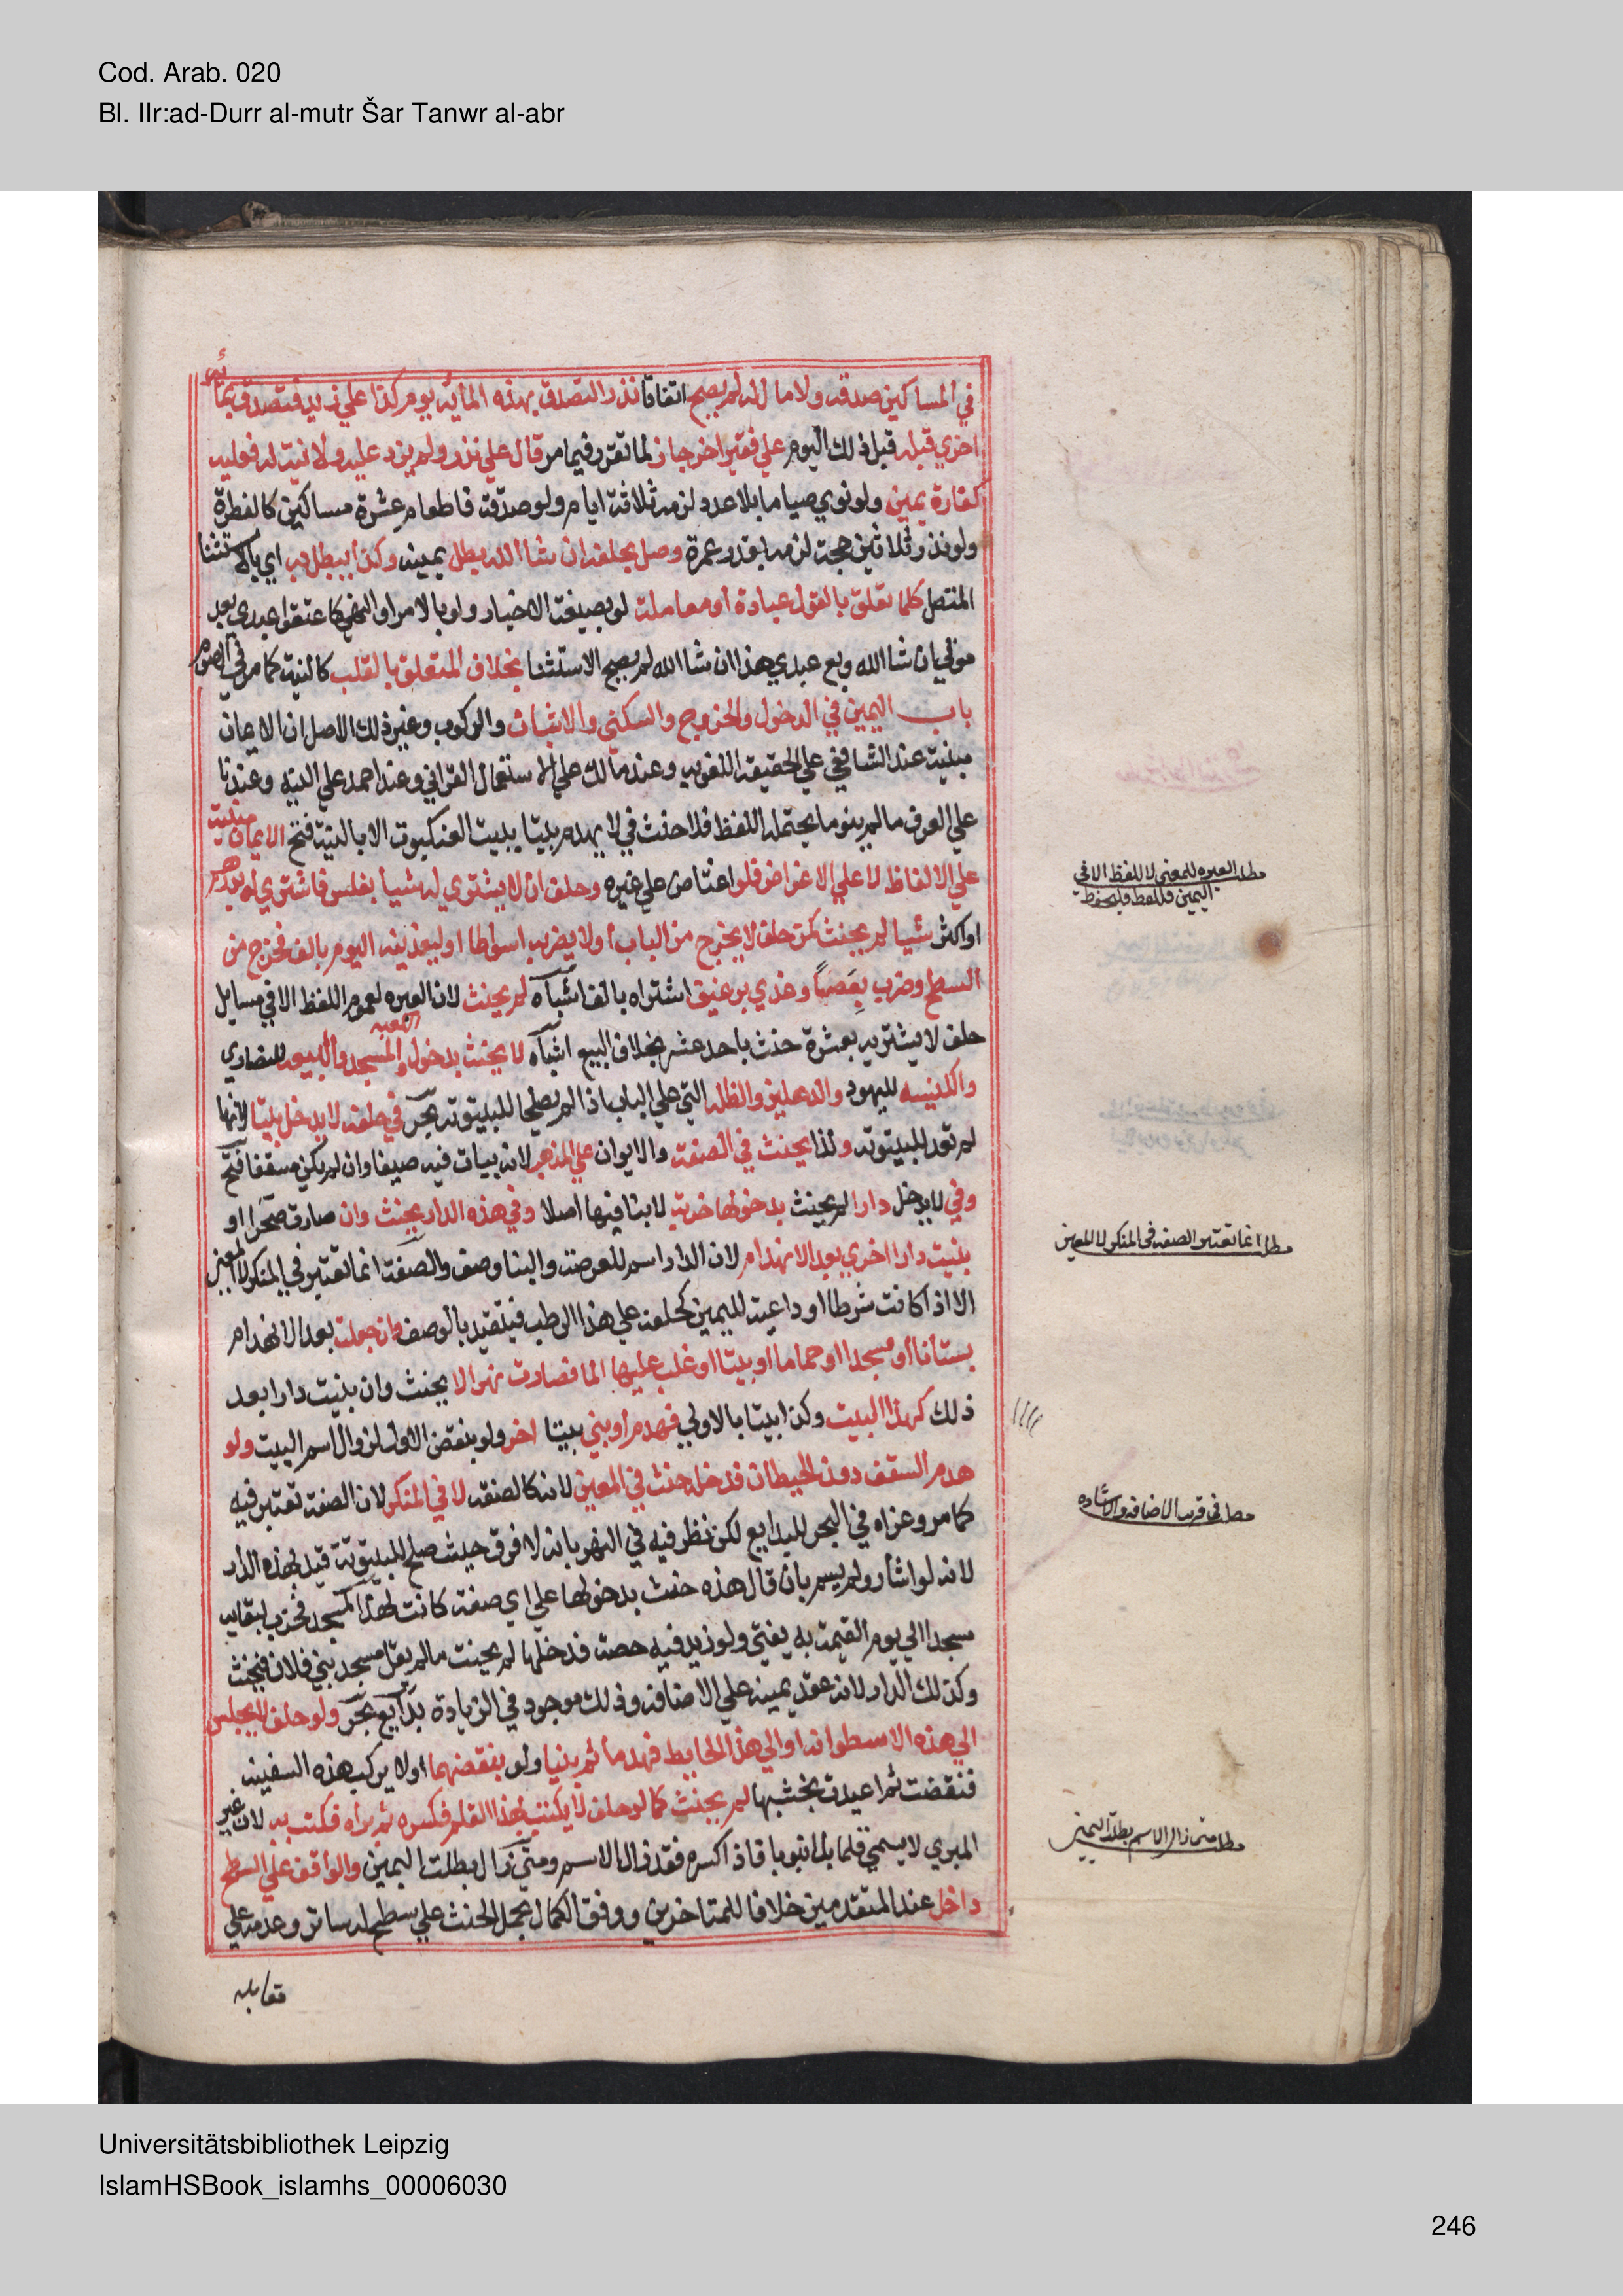 Cod. Arab. 020
Bl. IIr:ad-Durr al-mutr Šar Tanwr al-abr
في المساكين صدقه ولا مال له لم يصح اتفاقا نذر التصدق بهذه المائة يوم كذا علي زيد فتصدق بمائة
اخري قبله قبل ذلك اليوم علي فقير اخر جاز لما تقرر فيما مر قال علي نذر ولم يزد عليه ولا نية له فعليه
كفارة يمين ولو نوي صياما بلا عدد لزمه ثلاثة ايام ولو صدقة فاطعام عشرة مساكين كالفطرة
ولو نذر ثلاثين حجة لزمه بقدر عمره وصل بحلفه ان شا الله بطل يمينه وكذا يبطل به اي بالاستثنا
المتصل كلما تعلق بالقول عبادة او معاملة لو بصيغة الاخبار ولو بالامر او النهي كاعتقوا عبدي بعد
موتي ان شا الله وبع عبدي هذا ان شا الله لم يصح الاستثنا بخلاف المتعلق بالقلب كالنية كما مر في الصوم
باب اليمين في الدخول والخروج والسكني والاتيان والركوب وغير ذلك الاصل ان الايمان
مبنية عند الشافعي علي الحقيقة اللغوية وعند مالك علي الاستعمال القراني وعند احمد علي النيه وعندنا
علي العرف مالم ينو ما يحتمله اللفظ فلا حنث في لا يهدم بيتا ببيت العنكبوت الا بالنية فتح الايمان مبنية
علي الالفاظ لا علي الاغراض فلو اغتاض علي غيره وحلف ان لا يشتري له شيا بفلس فاشتري له بدرهم
او اكثر شيا لم يحنث كمن حلف لا يخرج من الباب او لا يضربه اسواطا او ليغذينه اليوم بالف فخرج من
السطح وضرب بعضها وغذي برغيف اشتراه بالف اشباه لم يحنث لان العبره لعموم اللفظ الا في مسايل
حلف لا يشتريه بعشرة حنث باحد عشر بخلاف البيع اشباه لا يحنث بدخول الكعبه والمسجد والبيعه للنصاري
والكنيسه لليهود والدهليز والظله التي علي الباب اذا لم يصلحا للبيتوتة بحر في حلفه لا يدخل بيتا لانها
لم تعد للبيتوتة ولذا يحنث في الصفة والايوان علي المذهب لانه يبات فيه صيفا وان لم يكن مسقفا فتح
وفي لا يدخل دارا لم يحنث بدخولها خربة لا بنا فيها اصلا وفي هذه الدار يحنث وان صارت صحرا او
بنيت دارا اخري بعد الانهدام لان الدار اسم للعرصة والبنا وصف والصفة انما تعتبر في المنكر لا المعين
الا اذا كانت شرطا او داعية لليمين كحلفه علي هذا الرطب فيتقيد بالوصف وان جعلت بعد الانهدام
بستانا او مسجدا او حماما او بيتا او غلب عليها الما فصارت نهرا لا يحنث وان بنيت دارا بعد
ذلك كهذا البيت وكذا بيتا بالاولي فهدم او بني بيتا اخر ولو بنقض الاول لزوال اسم البيت ولو
هدم السقف دون الحيطان فدخله حنث في المعين لانه كالصفة لا في المنكر لان الصفة تعتبر فيه
كما مر وعزاه في البحر للبدايع لكن نظر فيه في النهر بانه لا فرق حيث صلح للبيتوتة قيد بهذه الدار
لانه لو اشار ولم يسم بان قال هذه حنث بدخولها علي اي صفة كانت كهذا المسجد فخرب لبقايه
مسجدا الي يوم القيمة به يفتي ولو زيد فيه حصة فدخلها لم يحنث مالم يقل مسجد بني فلان فيحنث
وكذلك الدار لانه عقد يمينه علي الاضافة وذلك موجود في الزيادة بدايع بحر ولو حلف لا يجلس
الي هذه الاسطوانة او الي هذا الحايط فهدما ثم بنيا ولو بنقضهما او لا يركب هذه السفينة
فنقضت ثم اعيدت بخشبها لم يحنث كما لو حلف لا يكتب بهذا القلم فكسره ثم براه فكتب به لان غير
المبري لا يسمي قلما بل انبوبا فاذا كسره فقد زال الاسم ومتي زال بطلت اليمين والواقف علي السطح
داخل عند المتقدمين خلافا للمتاخرين ووفق الكمال بحمل الحنث علي سطح له ساتر وعدمه علي
مقابله
مطلب العبره للمعنى لا للفظ الا في
اليمين فللفظ فليحفظ
مطلب انما تعتبر الصفه في المنكر لا المعين
مطلب في قرب الاضافه والاشاره
مطلب متى زال الاسم بطلت اليمين
Universitätsbibliothek Leipzig
IslamHSBook_islamhs_00006030
246